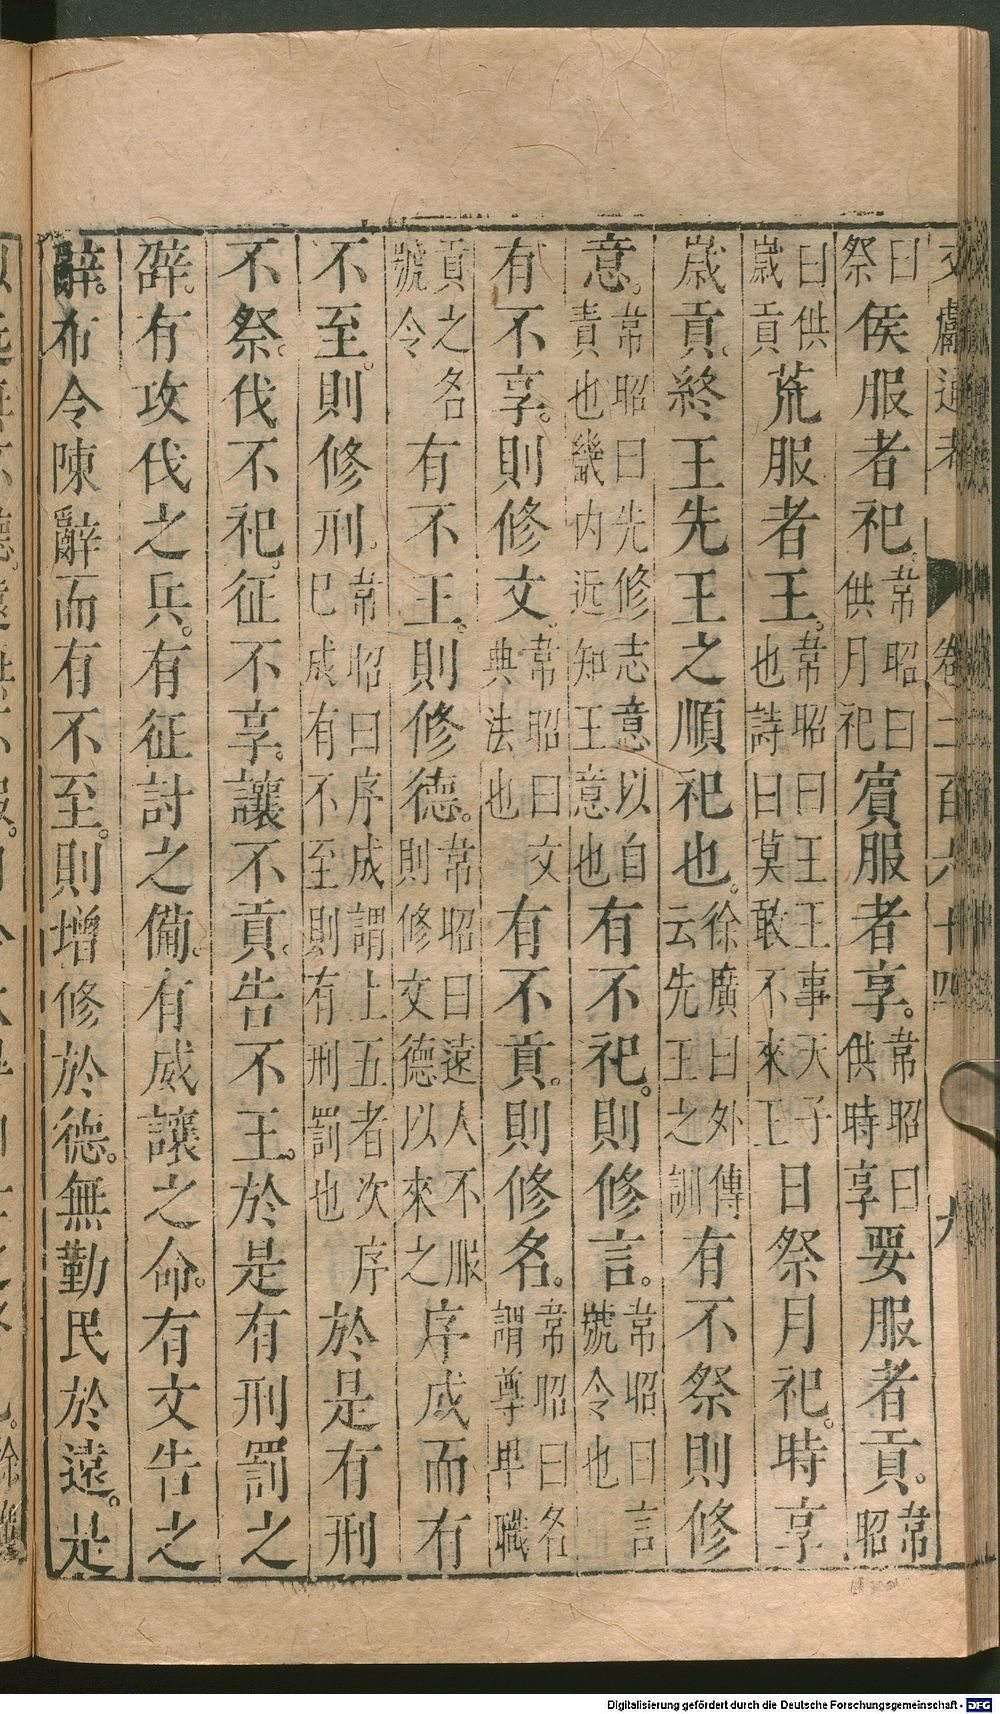 文獻通考 卷二百六十四 九
曰祭侯服者祀。韋昭曰供月祀賓服者享。韋昭曰供時享要服者貢。韋昭
曰供歲貢荒服者王。韋昭曰王王事天子也詩曰莫敢不來王日祭月祀。時享
歲貢。終王先王之順祀也。徐廣曰外傳云先王之訓有不祭則修
意。韋昭曰先修志意以自責也畿內近知王意也有不祀。則修言。韋昭曰言號令也
有不享。則修文。韋昭曰文典法也有不貢。則修名。韋昭曰名謂尊卑職
貢之名號令有不王。則修德。韋昭曰遠人不服則修文德以來之序成而有
不至。則修刑。韋昭曰序成謂上五者次序已成有不至則有刑罰也於是有刑
不祭。伐不祀。征不享。讓不貢。告不王。於是有刑罰之
辟。有攻伐之兵。有征討之備。有威讓之命。有文告之
辭。布令陳辭而有不至。則增修於德。無勤民於遠。是
Digitalisierung gefördert durch die Deutsche Forschungsgemeinschaft - DFG